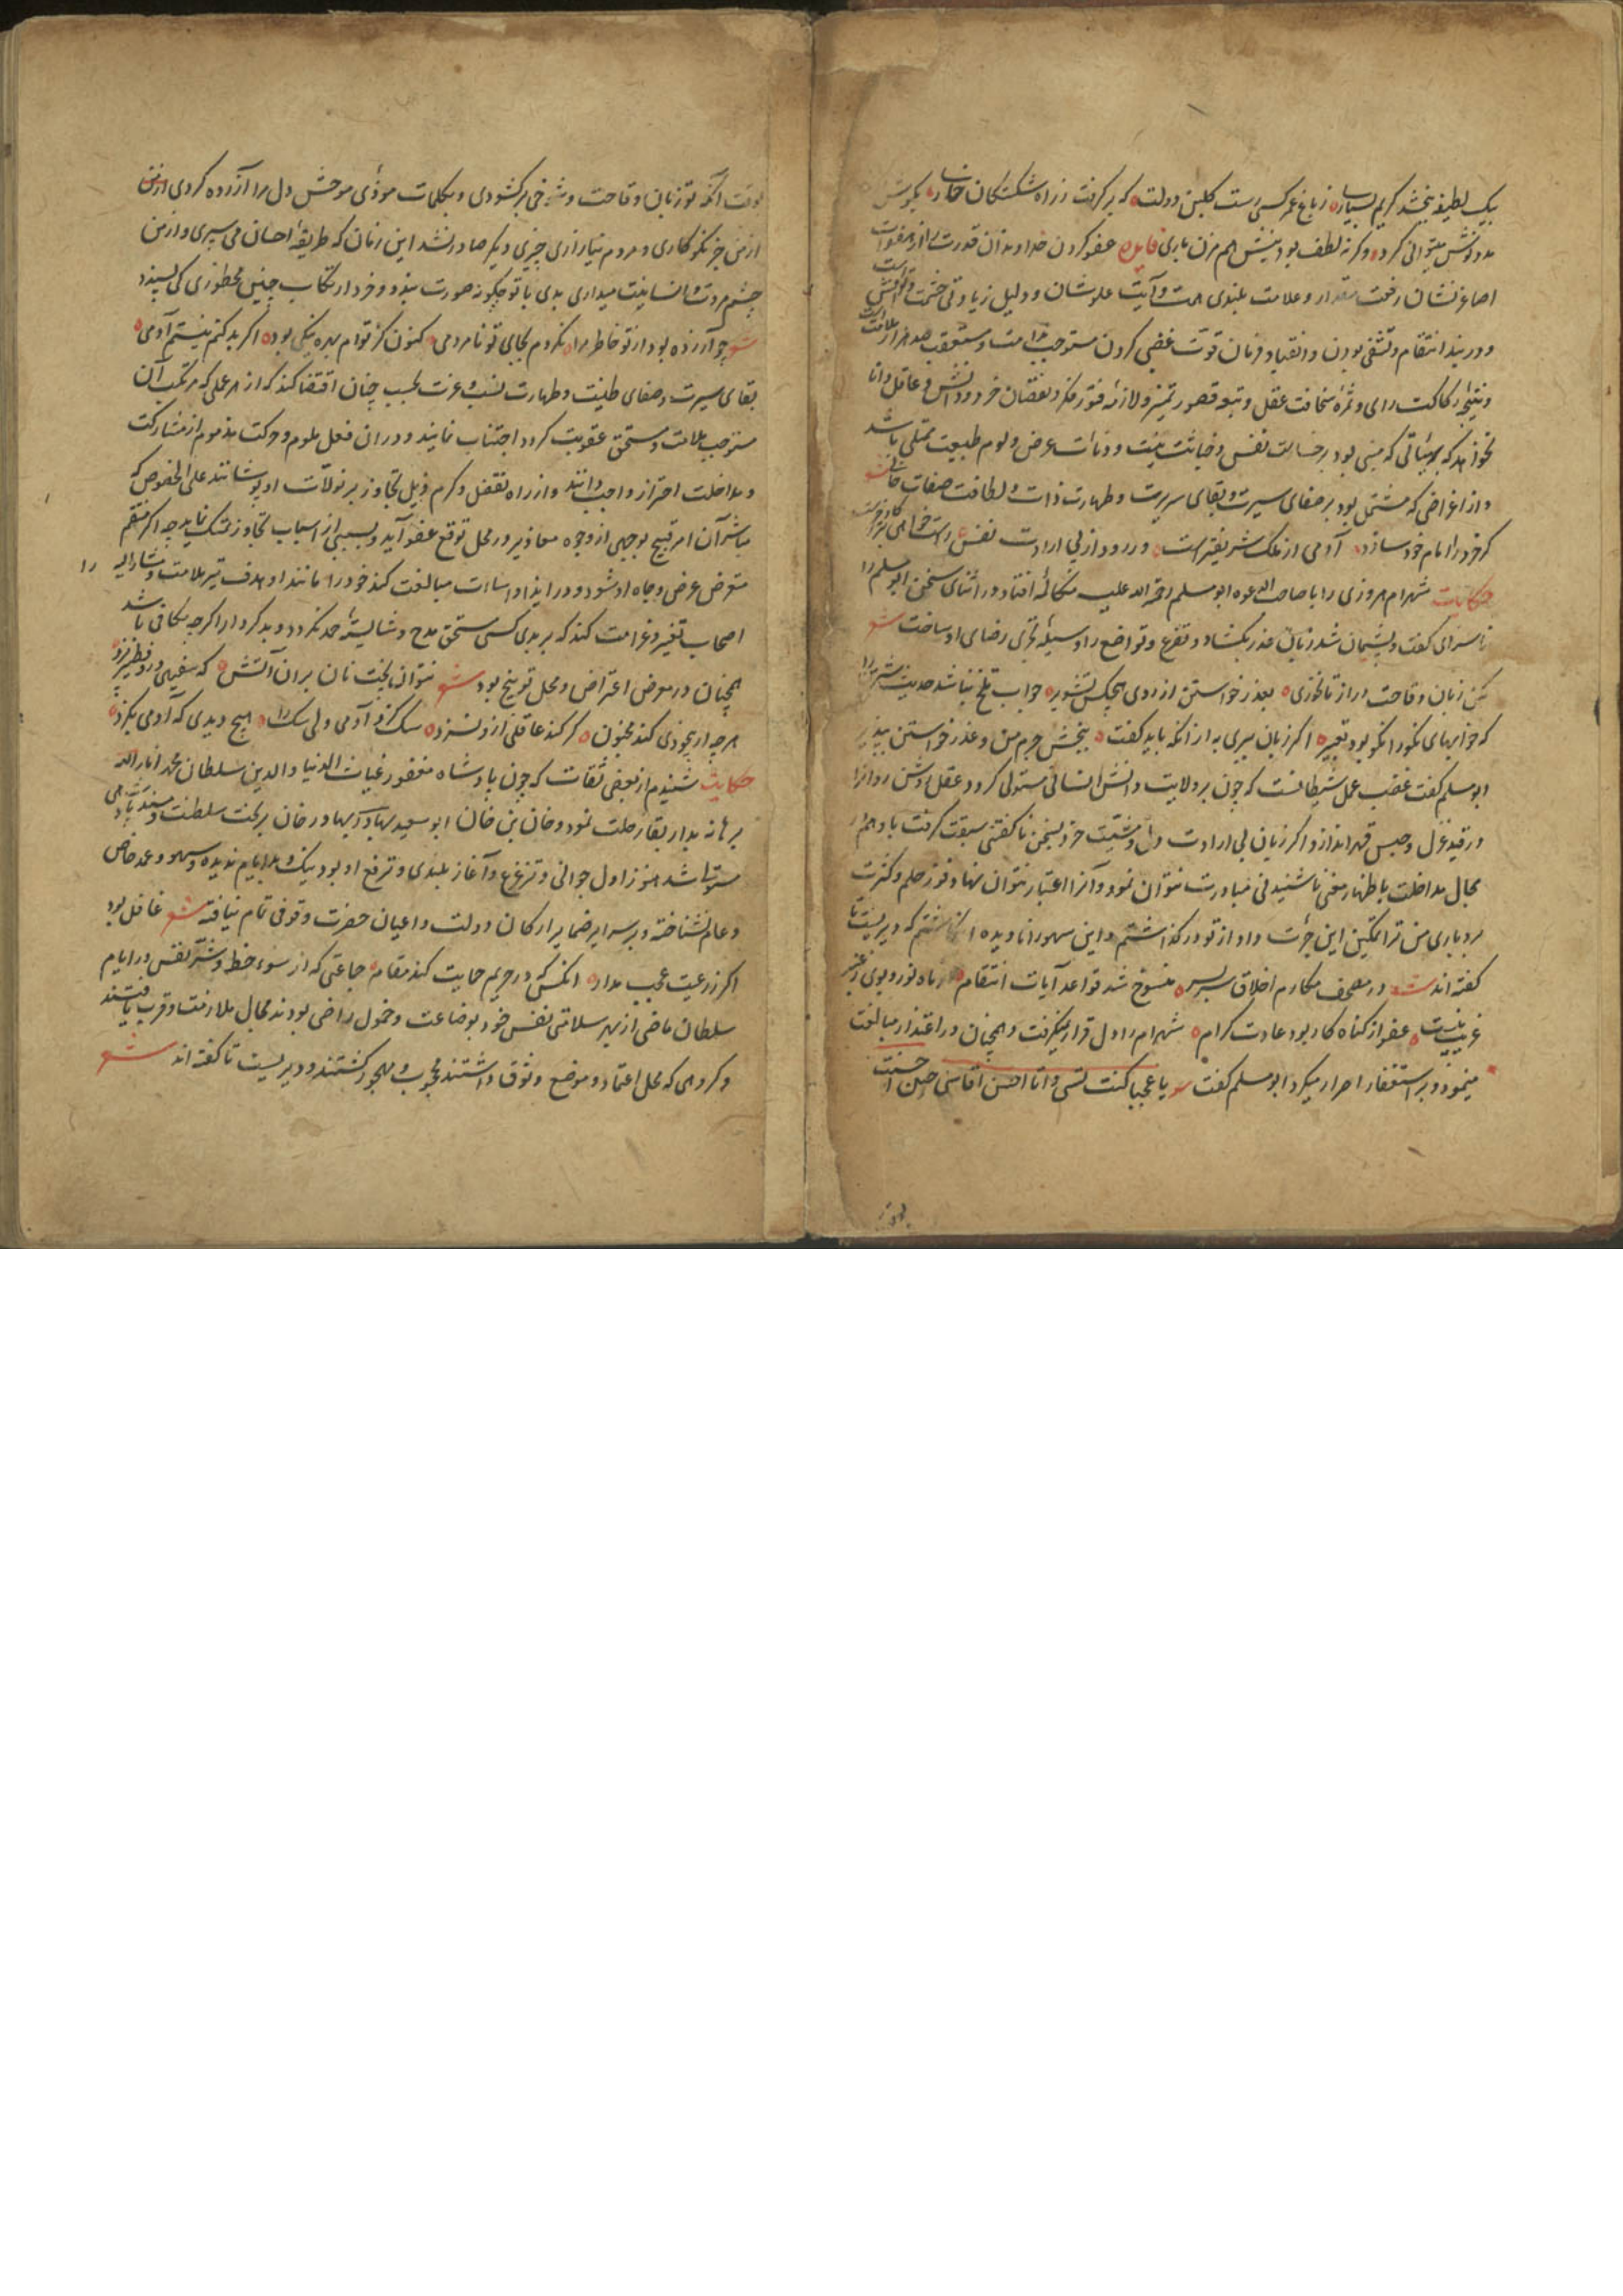 بیک لطیفه بخشد کریم بسیار ز باغ عمر کسی رست گلبن دولت که بر گرفت ز راه شکستگان خار بکوش
بد و نوش میتوانی کرد وگرنه لطف بود نیش هم مزن باری فایده عفو کردن خداوندان قدرت از هفوات
اصاغر نشان رفعت مقدار و علامت بلندی همت و آیت علو شان و دلیل زیادتی حشمت
و در بند انتقام و تشفی بودن و انقیاد فرمان قوت غضبی کردن مستوجب ندامت و مستعقب هزار ملامت
و نتیجه رکاکت رای و ثمره سخافت عقل و تبعه قصور تمیز و لازمه فتور فکر و نقصان خرد و دانش و عاقل دانا
نخواهد که بهیئاتی که مبنی بود بر خساست نفس و خباثت نیت و دنائت عرض و لوم طبیعت مبتلی باشد
و از اغراضی که مشتمل بود بر صفای سیرت و نقای سریرت و طهارت ذات و لطافت صفات خالی
کر خرد را امام خود سازد آدمی از ملک شریفتر است ور رود از پی ارادت نفس راست خواهی ز خر
حکایت شهرام مروزی را با صاحب الدعوه ابو مسلم رحمة الله علیه مکالمه افتاد در اثنای سخن ابو مسلم را
ناسزای گفت و پشیمان شد زبان عذر بگشاد و تضرع و تواضع را وسیله تحری رضای او ساخت شعر
مکن زبان وقاحت دراز تا نخوری بعذر خواستن از روی هیچکس تشویر جواب تلخ نباشد حدیث شیرین را
که خوابهای نکو را نکو بود تعبیر اگر زبان ببری به از آنکه باید گفت ببخش جرم من و عذر خواستن بپذیر
ابو مسلم گفت غضب عمل شیطانست که چون بر ولایت دانش انسانی مستولی گردد عقل روشن روانرا
در قید عزل و حبس قهر اندازد اگر زبان بی ارادت دل و مشیت خرد بسخن ناگفتنی سبقت گرفت یا وهم را
مجال مداخلت باظهار معنی ناشنیدنی مبادرت نتوان نمود و آنرا اعتبار نتوان نهاد و فور حلم و کثرت
بردباری من ترا تمکین این جرأت داد از تو در گذاشتم و این سهو را نادیده انگاشتم که دیریست تا
گفته اند شعر در مصحف مکارم اخلاق سربسر منسوخ شد قواعد آیات انتقام از ماه نور و بوی ز عنبر
غریب نیست عفو از گناه کار بود عادت کرام شهرام را دل قرار نمیگرفت و همچنان در اعتذار مبالغت
مینمود و بر استغفار اصرار میکرد ابو مسلم گفت یا عجبا کنت تسی و انا احسن افاسئ حین احسنت
بوقت آنکه تو زبان وقاحت و شوخی بر گشودی و بکلمات موذی موحش دل مرا آزرده کردی از من
از من جز نکوکاری و مردم نیازاری چیزی دیگر صادر نشد این زمان که طریقه احسان می سپری و از من
چشم مروت و انسانیت میداری بدی با تو چگونه صورت بندد و خرد ارتکاب چنین محظوری کی پسندد
شعر چو آزرده بود از تو خاطر مرا نکردم بجای تو نامردمی کنون کز توام بهره نیکی بود اگر بد کنم نیستم آدمی
نقای سیرت و صفای طینت و طهارت نسب و عزت حسب چنان اقتضا کند که از هر عملی که مرتکب آن
مستوجب ملامت و مستحق عقوبت گردد اجتناب نمایند و در ان فعل ملوم و حرکت مذموم از مشارکت
و مداخلت احتراز واجب دانند و از راه تفضل و کرم ذیل تجاوز بر زلات او پوشانند علی الخصوص که
مباشر آن امر قبیح بوجهی از وجوه معاذیر در محل توقع عفو آید و بسببی از اسباب تجاوز تمسک نماید چه اگر منتقم
متعرض عرض و جاه او شود و در ایذا و اساءت مبالغت کند خود را مانند او هدف تیر ملامت و مشار الیه
را
اصحاب تعییر و غرامت کند که بر بدی کسی مستحق مدح و شایسته حمد نگردد و بد کردار اگرچه مکافی باشد
همچنان در معرض اعتراض و محل توبیخ بود شعر نتوان پخت نان بران آتش که سفیهی
هرچه از بیخودی کند مجنون گر کند عاقلی ازو نسزد سگ گزد آدمی ولی سگ را هیچ دیدی که آدمی بگزد
حکایت شنیدم از بعضی ثقات که چون پادشاه مغفور غیاث الدنیا و الدین سلطان محمد انار الله
برهانه بدار بقا رحلت نمود و خان بن خان ابو سعید بهادر بهادر خان بر تخت سلطنت و مسند پادشاهی
مستولی شد هنوز اول جوانی و ترعرع و آغاز بلندی و ترفع او بود نیک و بد ایام ندیده و سهو و عمد خاص
و عام نشناخته و بر سرایر ضمایر ارکان دولت و اعیان حضرت وقوفی تمام نیافته شعر غافل بود
اگر ز رعیت عجب مدار انکس که در حریم حمایت کند مقام جماعتی که از سوء خط و شر نفس در ایام
سلطان ماضی از بهر سلامتی نفس خود بوضاعت و خمول راضی بودند مجال ملازمت و قرب یافتند
و کروهی که محل اعتماد و موضع وثوق داشتند محجوب و مهجور گشتند و دیریست تا گفته اند شعر